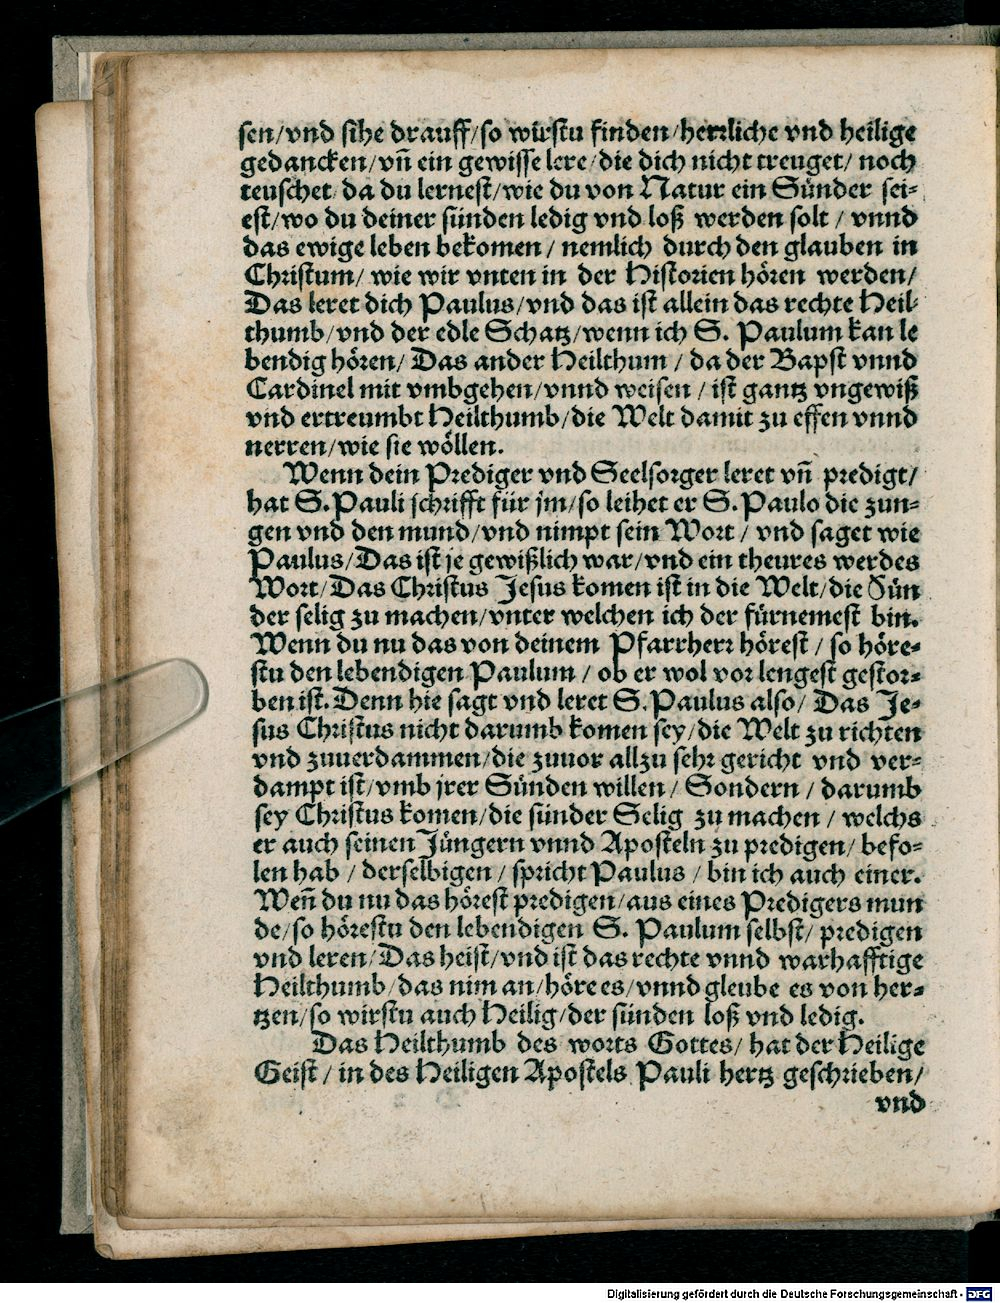 sen/vnd sihe drauff/so wirstu finden/herrliche vnd heilige
gedancken/vñ ein gewisse lere/die dich nicht treuget/ noch
teuschet/da du lernest/wie du von Natur ein Sünder sei-
est/wo du deiner sünden ledig vnd loß werden solt / vnnd
das ewige leben bekomen / nemlich durch den glauben in
Christum/ wie wir vnten in der Historien hören werden/
Das leret dich Paulus/vnd das ist allein das rechte Heil-
thumb/vnd der edle Schatz/wenn ich S. Paulum kan le
bendig hören/ Das ander Heilthum / da der Bapst vnnd
Cardinel mit vmbgehen/vnnd weisen / ist gantz vngewiß
vnd ertreumbt Heilthumb/die Welt damit zu effen vnnd
nerren/wie sie wöllen.
Wenn dein Prediger vnd Seelsorger leret vñ predigt/
hat S. Pauli schrifft für jm/so leihet er S. Paulo die zun-
gen vnd den mund/vnd nimpt sein Wort / vnd saget wie
Paulus/Das ist je gewißlich war/vnd ein theures werdes
Wort/Das Christus Jesus komen ist in die Welt/die Sün
der selig zu machen/vnter welchen ich der fürnemest bin.
Wenn du nu das von deinem Pfarrherr hörest / so höre-
stu den lebendigen Paulum / ob er wol vor lengest gestor-
ben ist. Denn hie sagt vnd leret S. Paulus also/ Das Je-
sus Christus nicht darumb komen sey/die Welt zu richten
vnd zuuerdammen/die zuuor allzu sehr gericht vnd ver-
dampt ist/vmb jrer Sünden willen / Sondern / darumb
sey Christus komen/die sünder Selig zu machen / welchs
er auch seinen Jüngern vnnd Aposteln zu predigen/ befo-
len hab / derselbigen / spricht Paulus / bin ich auch einer.
Weñ du nu das hörest predigen/aus eines Predigers mun
de/so hörestu den lebendigen S. Paulum selbst/ predigen
vnd leren/Das heist/vnd ist das rechte vnnd warhafftige
Heilthumb/das nim an/höre es/vnnd gleube es von her-
tzen/so wirstu auch Heilig/der sünden loß vnd ledig.
Das Heilthumb des worts Gottes/ hat der Heilige
Geist / in des Heiligen Apostels Pauli hertz geschrieben/
vnd
Digitalisierung gefördert durch die Deutsche Forschungsgemeinschaft - DFG